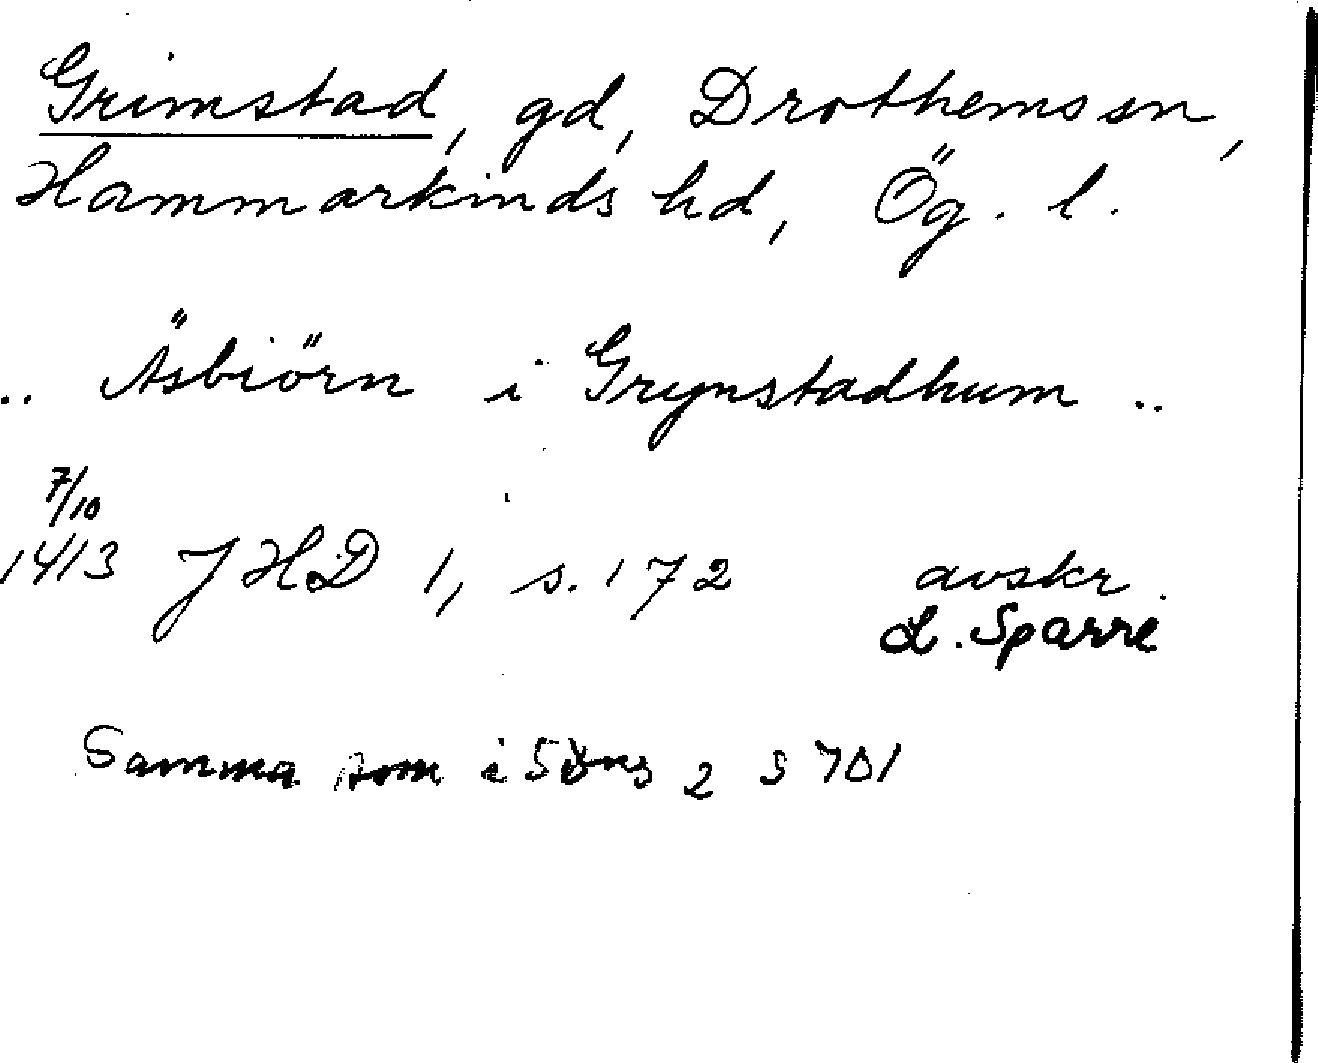 Grimstad, gd, Drothems sn,
Hammarkinds hd, Ög. l.
.. Äsbiörn i Grynstadhum ..
7/10
1413 JHD 1, s. 172 avskr.
L. Sparre
Samma som i 2 s 701